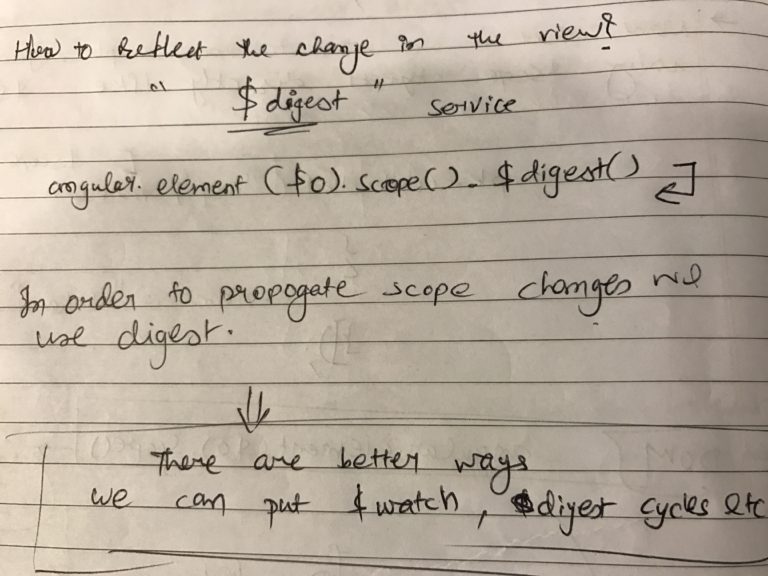 How to Reflect the change in the view?
" $digest " service
angular. element ($0). scope(). $digest() ↵
In order to propogate scope changes we
use digest.
⇓
There are better ways
we can put $watch, $digest cycles etc